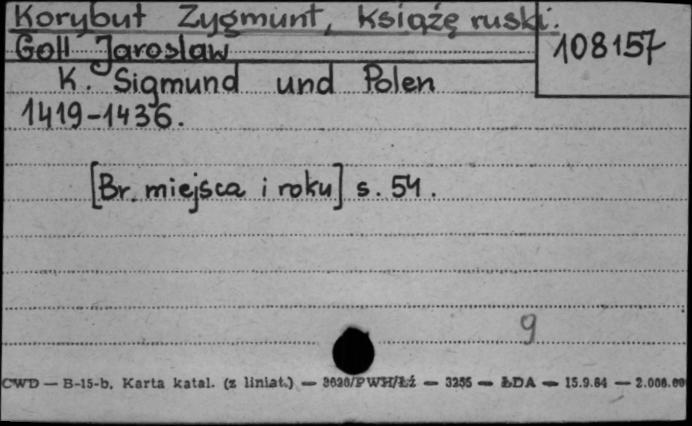 Korybut Zygmunt, książę ruski.
108157
Goll Jaroslaw
K. Sigmund und Polen
1419-1436.
[Br. miejsca i roku] s. 54.
9
CWD — B-15-b. Karta katal. (z liniat.) — 3626/PWH/Łź — 3255 — ŁDA — 15.9.64 — 2.000.00